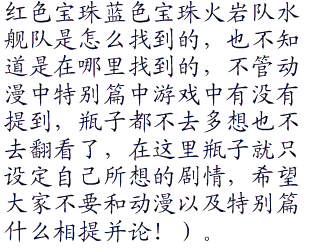 红色宝珠蓝色宝珠火岩队水
舰队是怎么找到的，也不知
道是在哪里找到的，不管动
漫中特别篇中游戏中有没有
提到，瓶子都不去多想也不
去翻看了，在这里瓶子就只
设定自己所想的剧情，希望
大家不要和动漫以及特别篇
什么相提并论！）。